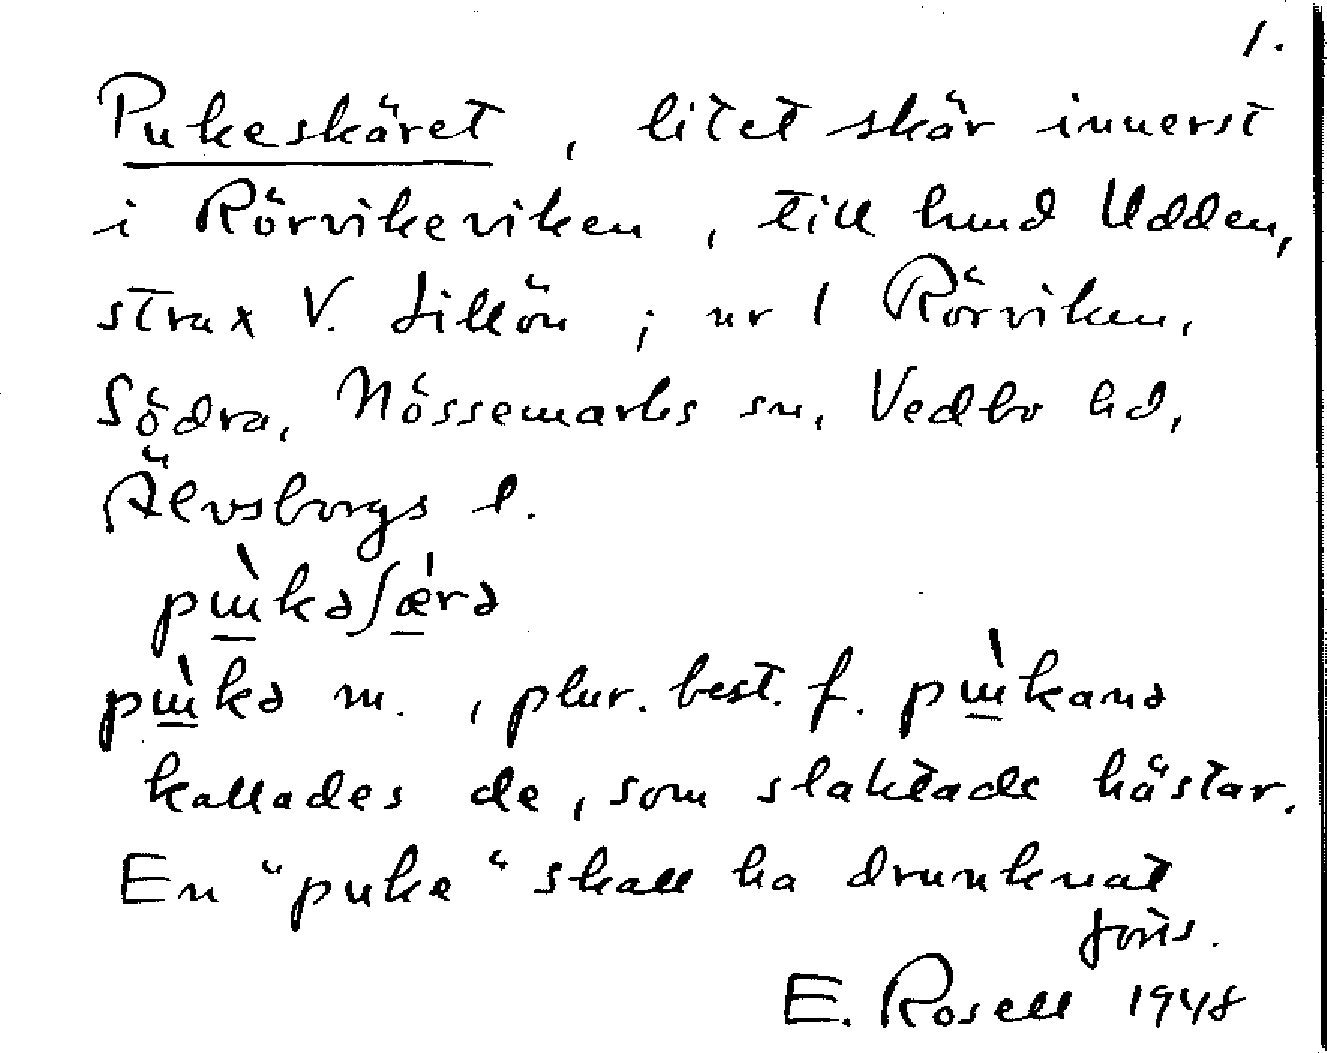 1.
Pukeskäret, litet skär innerst
i Rörvikeviken, till hund Udden,
strax V. Lillön; nr 1 Rörviken,
Södra, Nössemarks sn, Vedbo hd,
Älvsborgs l.
pɯ̀kəʃǽrə
pɯ̀kə m., plur. best. f. pɯ̀kanə
kallades de, som slaktade hästar.
En "puke" skall ha drunknat
E. Rosell 1948